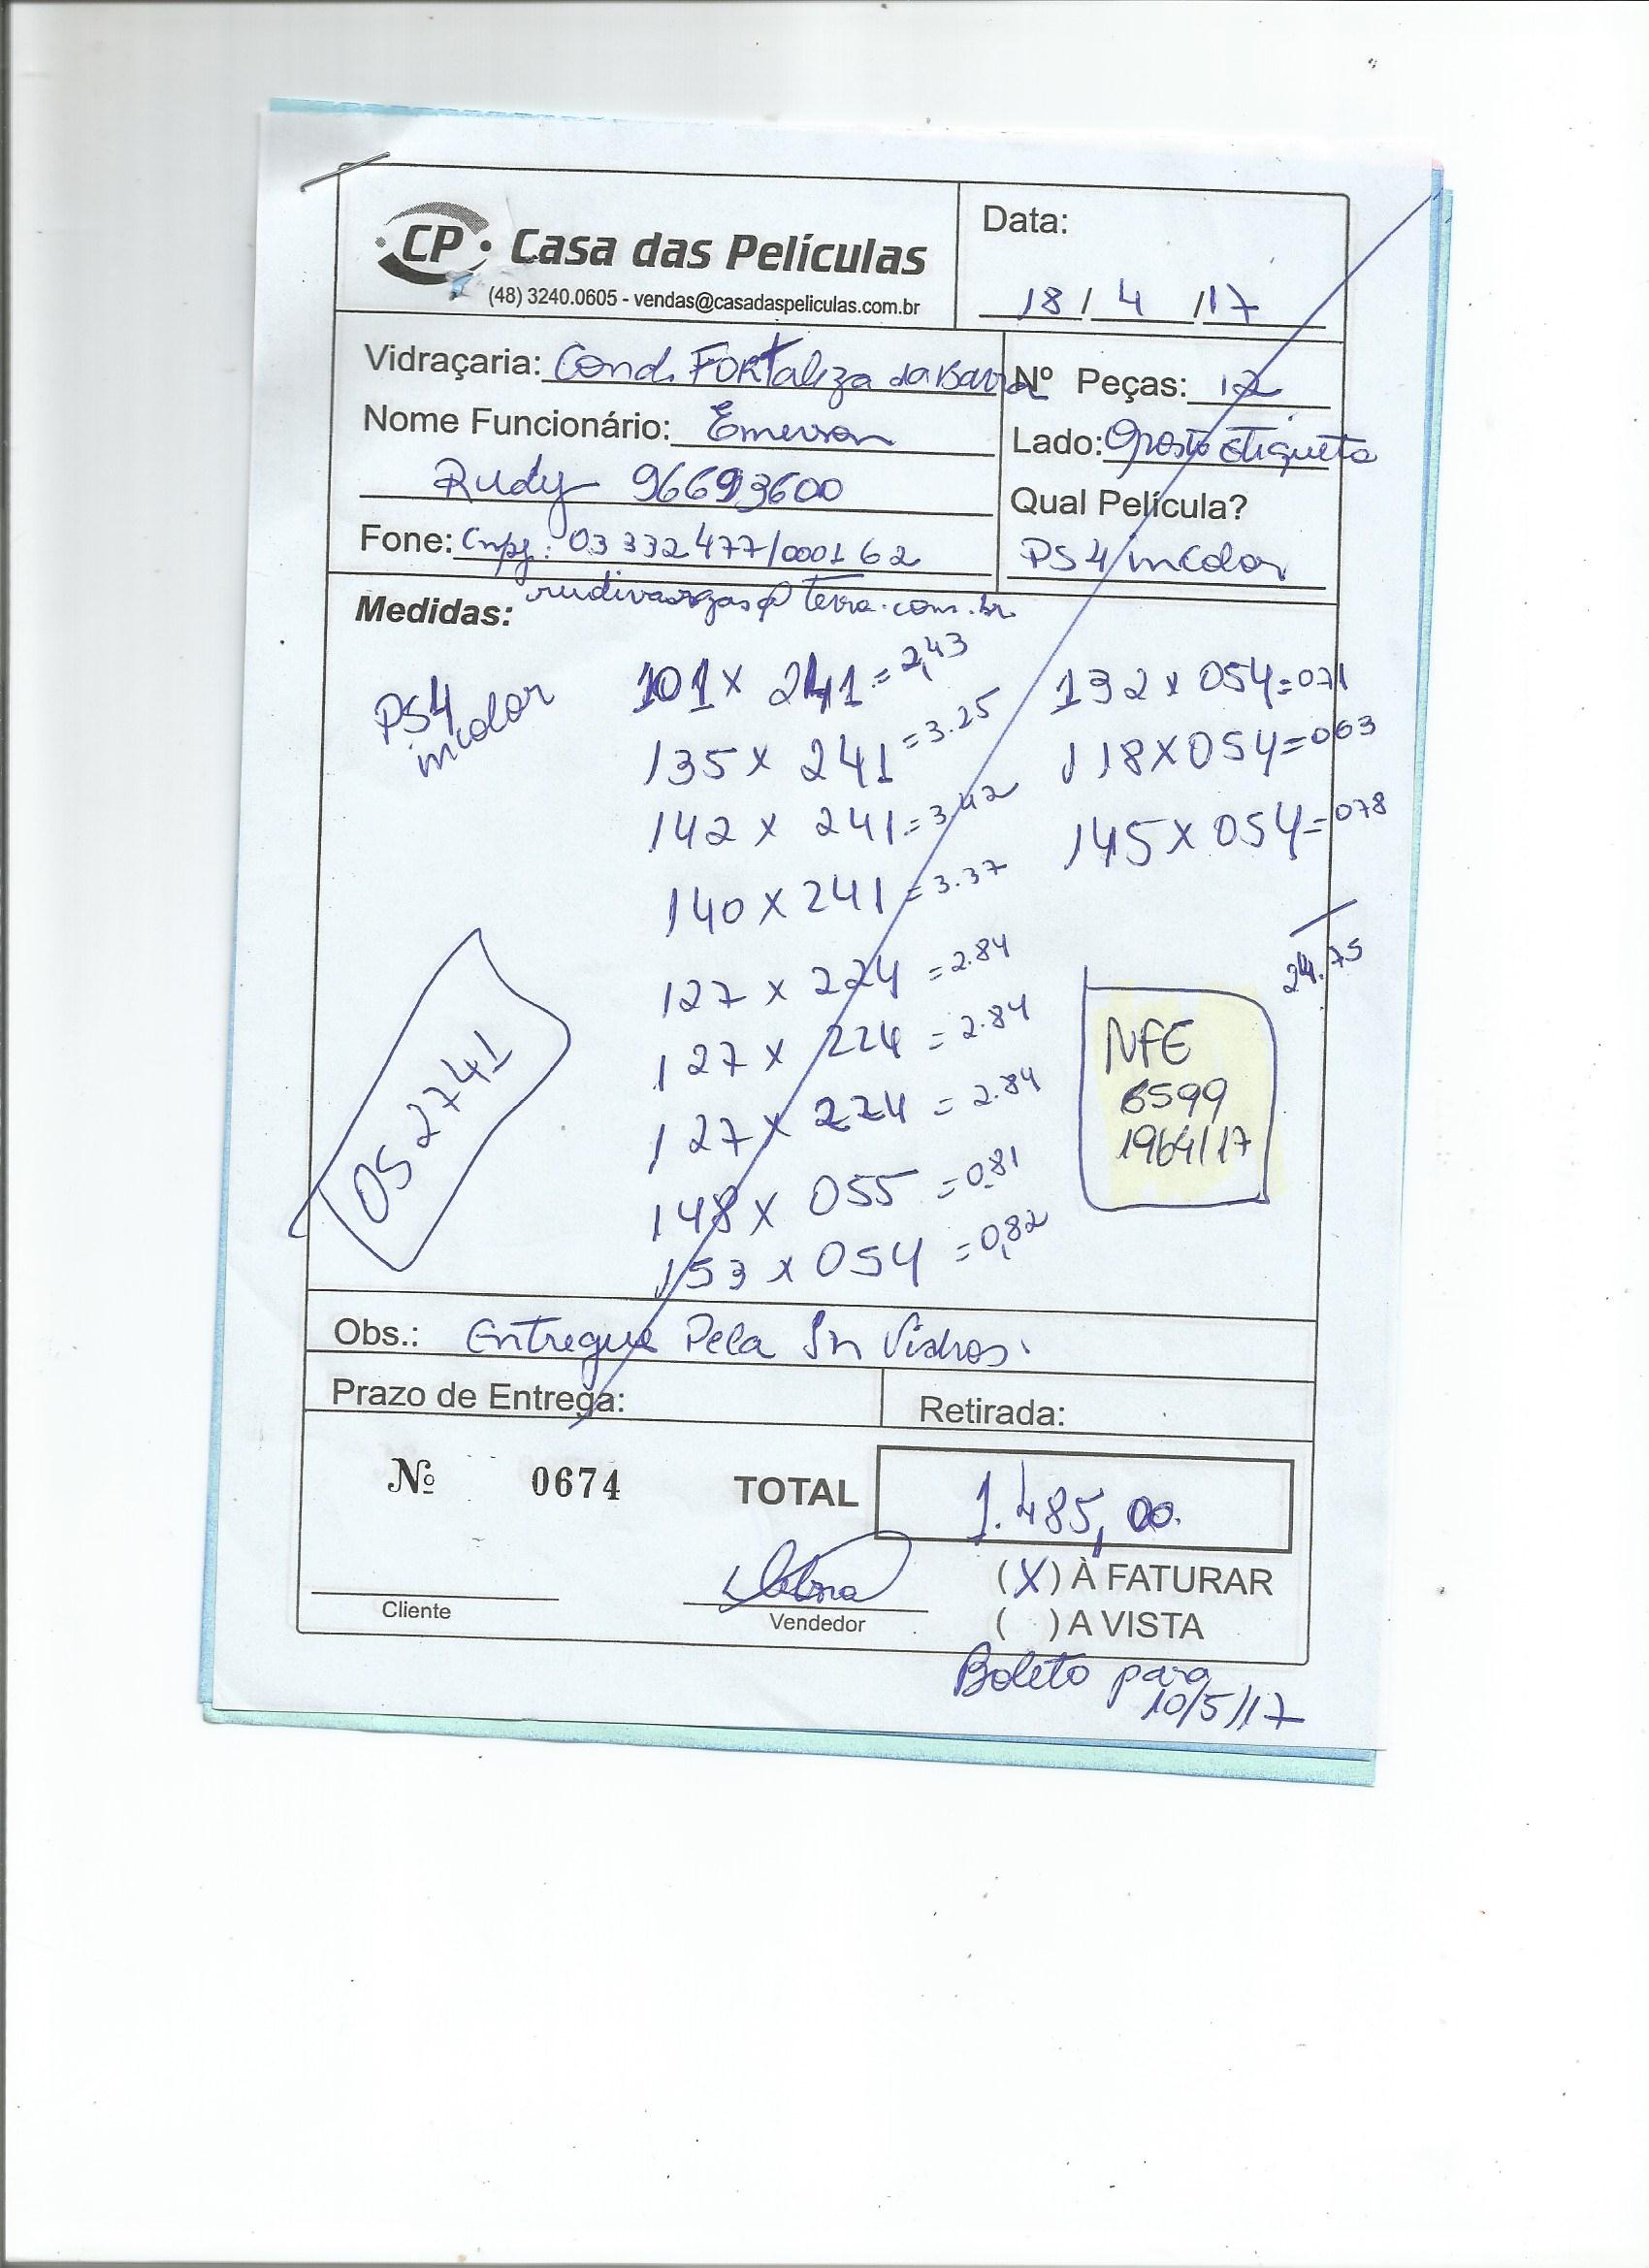 CP Casa das Películas
(48) 3240.0605 - vendas@casadaspeliculas.com.br
Data:
18 / 4 / 17
Vidraçaria: Cond. FORtaleza da Barra
Nº Peças: 12
Nome Funcionário: Emerson
Lado: Oposto Etiqueta
Rudy 96693600
Qual Película?
Fone: Cnpj: 03 332477/0001 62
PS4 incolor
rudivargas@terra.com.br
Medidas:
PS4
incolor
101 x 241 = 2,43
135 x 241 = 3.25
142 x 241 = 3.42
140 x 241 = 3.37
127 x 224 = 2.84
127 x 224 = 2.84
127 x 224 = 2.84
148 x 055 = 0.81
153 x 054 = 0,82
132 x 054 = 071
118 x 054 = 063
145 x 054 = 078
24.75
NFE
6599
1964/17
052741
Obs.: Entregue Pela Sn Vidros.
Prazo de Entrega:
Retirada:
Nº 0674
TOTAL 1.485,00.
(X) À FATURAR
( ) A VISTA
Cliente
Vendedor
Boleto para
10/5/17